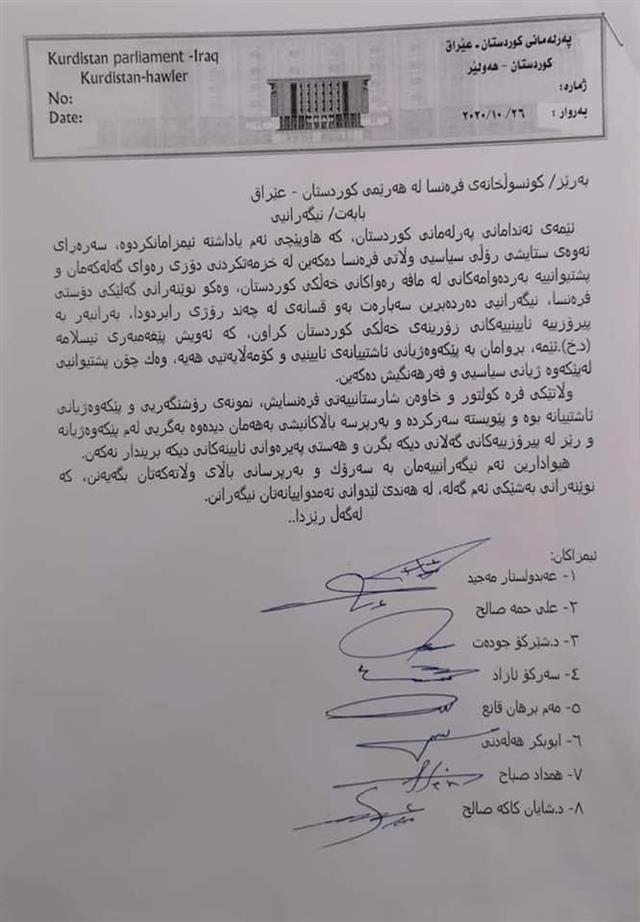 Kurdistan parliament -Iraq
Kurdistan-hawler
No:
Date:
پەرلەمانی کوردستان - عێراق
کوردستان - هەولێر
ژمارە:
بەروار : ٢٦/ ٢٠٢٠/١٠
بەڕێز/ کونسوڵخانەی فڕەنسا لە هەرێمی کوردستان - عێراق
بابەت/ نیگەرانیی
ئێمەی ئەندامانی پەرلەمانی کوردستان، کە هاوپێچی ئەم یاداشتە ئیمزامانکردوە، سەرەڕای
ئەوەی ستایشی رۆڵی سیاسیی وڵاتی فڕەنسا دەکەین لە خزمەتکردنی دۆزی رەوای گەلەکەمان و
پشتیوانییە بەردەوامەکانی لە مافە رەواکانی خەڵکی کوردستان، وەکو نوێنەرانی گەلێکی دۆستی
فرەنسا، نیگەرانیی دەردەبڕین سەبارەت بەو قسانەی لە چەند رۆژی رابردودا، بەرانبەر بە
پیرۆزییە ئایینییەکانی زۆرینەی خەڵکی کوردستان کراون، کە ئەویش پێغەمبەری ئیسلامە
(د.خ).ئێمە، بڕوامان بە پێکەوەژیانی ئاشتییانەی ئایینیی و کۆمەڵایەتیی هەیە، وەك چۆن پشتیوانیی
لەپێکەوە ژیانی سیاسیی و فەرهەنگیش دەکەین.
وڵاتێکی فرە کولتور و خاوەن شارستانییەتی فڕەنسایش، نمونەی رۆشنگەریی و پێکەوەژیانی
ئاشتییانە بوە و پێویستە سەرکردە و بەرپرسە باڵاکانیشی بەهەمان دیدەوە بەگریی لەم پێکەوەژیانە
و رێز لە پیرۆزییەکانی گەلانی دیکە بگرن و هەستی پەیرەوانی ئایینەکانی دیکە بریندار نەکەن.
هیوادارین ئەم نیگەرانییەمان بە سەرۆك و بەرپرسانی باڵای وڵاتەکەتان بگەیەنن، کە
نوێنەرانی بەشێکی ئەم گەلە، لە هەندێ لێدوانی ئەمدواییانەتان نیگەرانن.
لەگەڵ رێزدا..
ئیمزاکان:
١- عەبدولستار مەجید
٢- علی حمە صالح
٣- د.شێرکۆ جودەت
٤- سەرکۆ ئازاد
٥- مەم برهان قانع
٦- ابوبکر هەڵەدنی
٧- همداد صباح
٨- د.شایان کاکە صالح